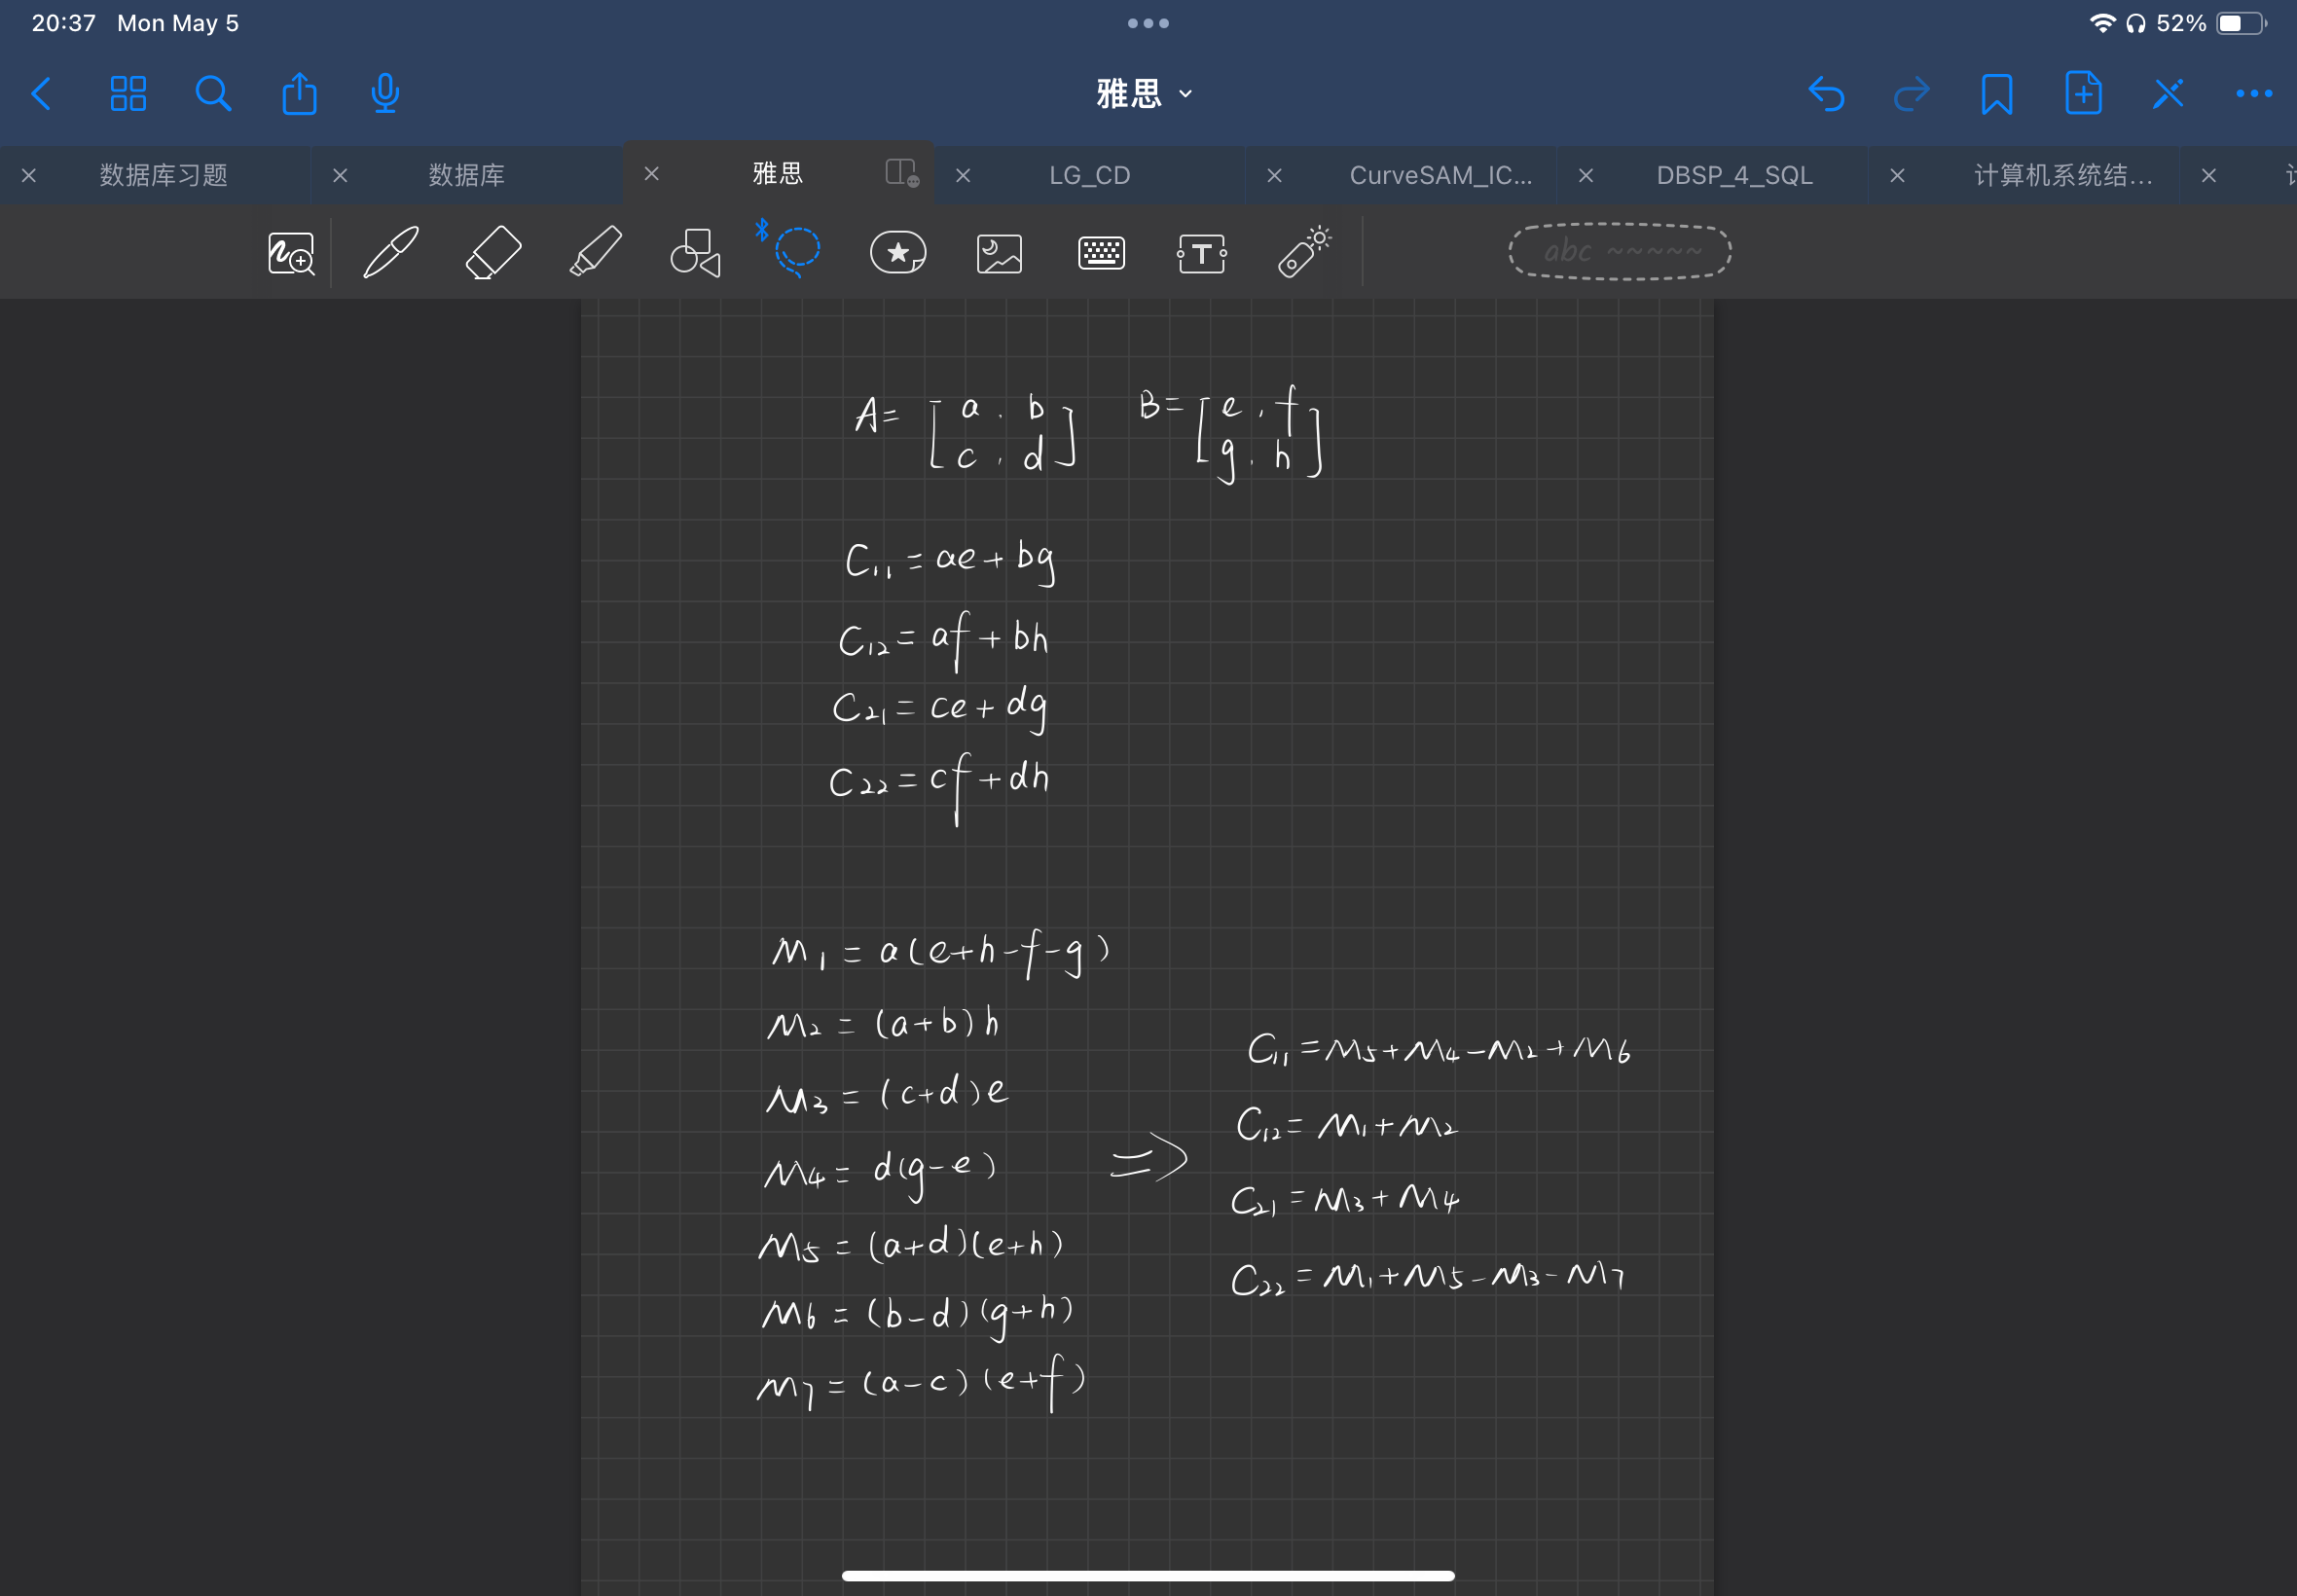 20:37 Mon May 5 52%
雅思
数据库习题 数据库 雅思 LG_CD CurveSAM_IC... DBSP_4_SQL 计算机系统结...
T abc ~~~~~
A= [ a , b B= [ e , f
c , d ] g , h ]
C₁₁ = ae + bg
C₁₂ = af + bh
C₂₁ = ce + dg
C₂₂ = cf + dh
M₁ = a(e+h-f-g)
M₂ = (a+b)h
M₃ = (c+d)e
M₄ = d(g-e)
M₅ = (a+d)(e+h)
M₆ = (b-d)(g+h)
M₇ = (a-c)(e+f)
=>
C₁₁ = M₅+M₄-M₂+M₆
C₁₂ = M₁+M₂
C₂₁ = M₃+M₄
C₂₂ = M₁+M₅-M₃-M₇